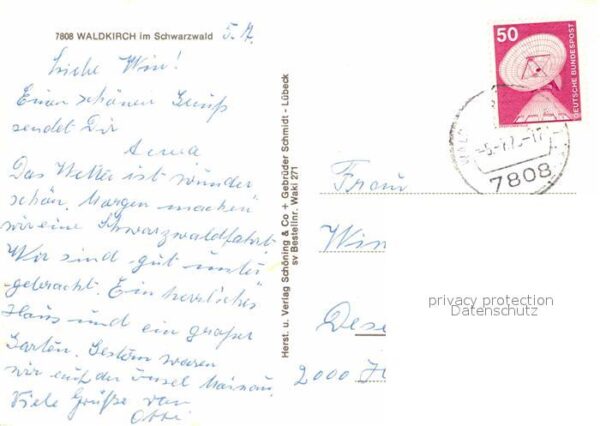 7808 WALDKIRCH im Schwarzwald 5.
Liebe Win!
Einen schönen Gruß
sendet Dir
Das Wetter ist wunder
schön. Morgen machen
wir eine Schwarzwaldfahrt
Wir sind gut unter
gebracht. Ein herrliches
Haus und ein großer
Garten. Gestern waren
wir auf der Insel Mainau.
Viele Grüße von
Otti
Herst. u. Verlag Schöning & Co + Gebrüder Schmidt - Lübeck
sv Bestellnr. Waki 271
50
DEUTSCHE BUNDESPOST
7808
Frau
Win
privacy protection
Datenschutz
2000